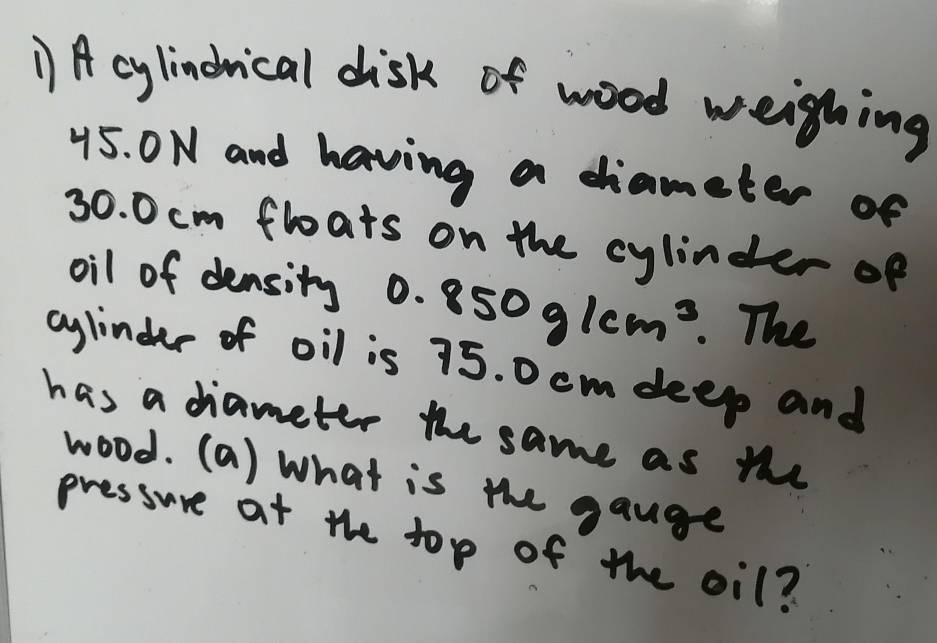 1) A cylindrical disk of wood weighing
45.0N and having a diameter of
30.0cm floats on the cylinder of
oil of density 0.850g/cm³. The
cylinder of oil is 75.0cm deep and
has a diameter the same as the
wood. (a) What is the gauge
pressure at the top of the oil?